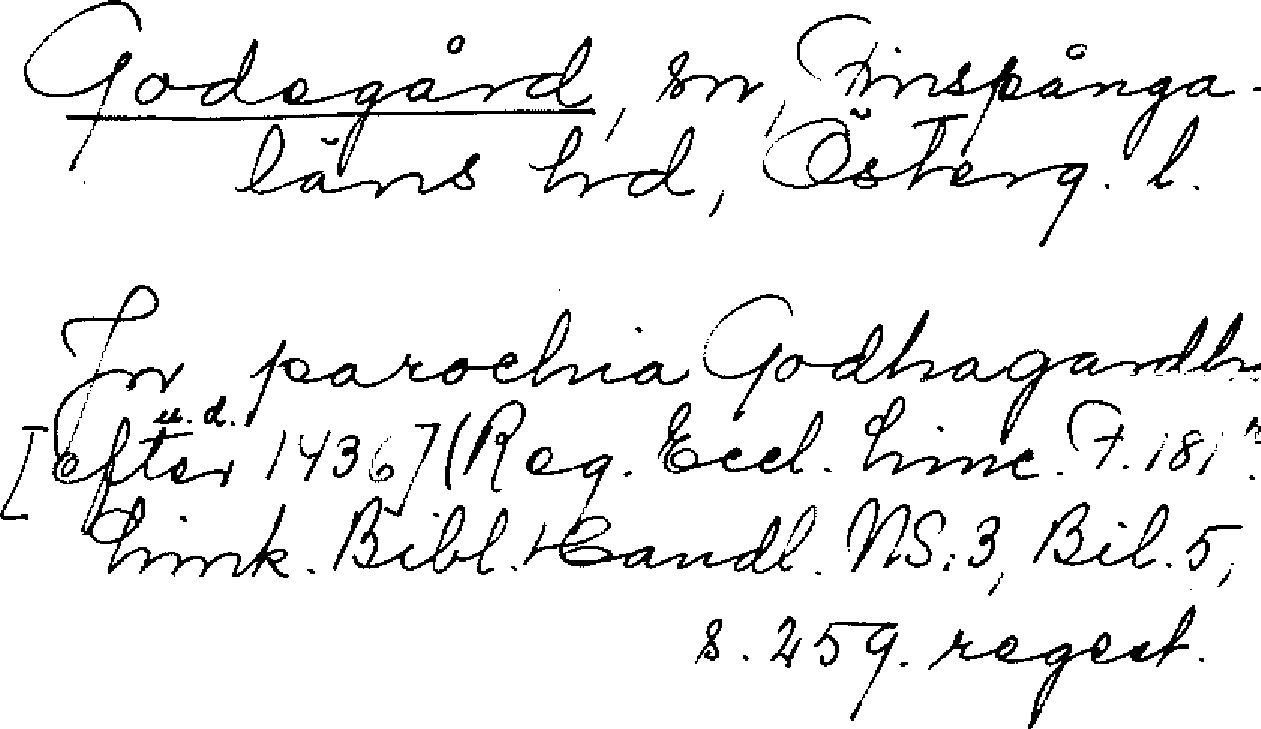 Godegård, sn, Finspånga-
läns hd, Österg. l.
In parochia Godhagardh
u. d.
[efter 1436] (Reg. Eccl. Linc. F. 181
Link. Bibl. Handl. NS: 3, Bil. 5,
s. 259. regest.